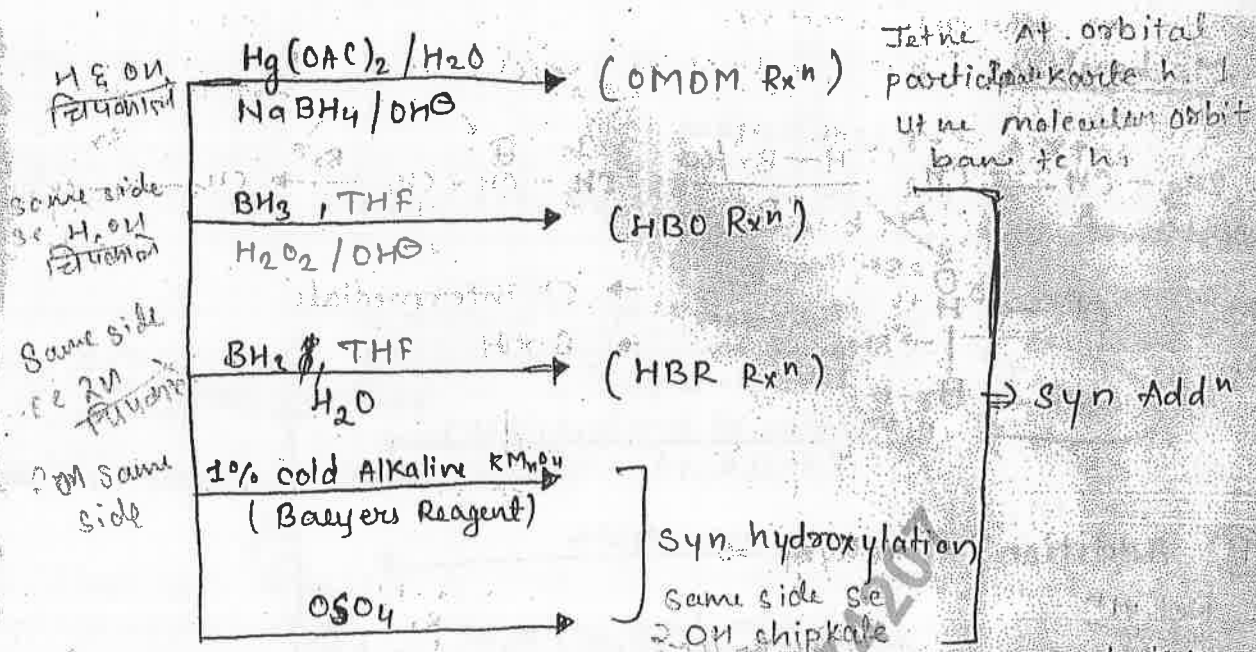 H & OH
चिपकाले
Hg(OAC)2 / H2O
NaBH4 / OH⊖
(OMDM Rxn)
Jetne At. orbital
h.
Ut ne molecular orbit
ban te h.
Same side
se H, OH
चिपकाले
BH3 , THF
H2O2 / OH⊖
(HBO Rxn)
intermediate
Same side
se 2H
चिपकाले
BH2 , THF
H2O
(HBR Rxn)
⇒ Syn Addn
2 OH Same
side
1% cold Alkaline KMnO4
(Baeyers Reagent)
OSO4
Syn hydroxylation
same side se
2 OH chipkale